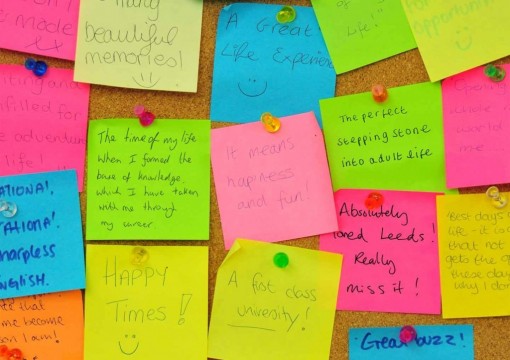 made
many
beautiful
memories!
A Great
Life Experience
opportunit
and
filled for
adventure
life!
The time of my life
When I formed the
base of knowledge
which I have taken
with me through
my career.
It means
hapiness
and fun!
The perfect
stepping stone
into adult life
Opening
world
me
Sharpless
ENGLISH.
HAPPY
Times!
A first class
university!
Absolutely
loved Leeds!
Really
miss it!
Best days
life - it is
that not
gets the
These days
why I
me become
I am!
Great buzz!